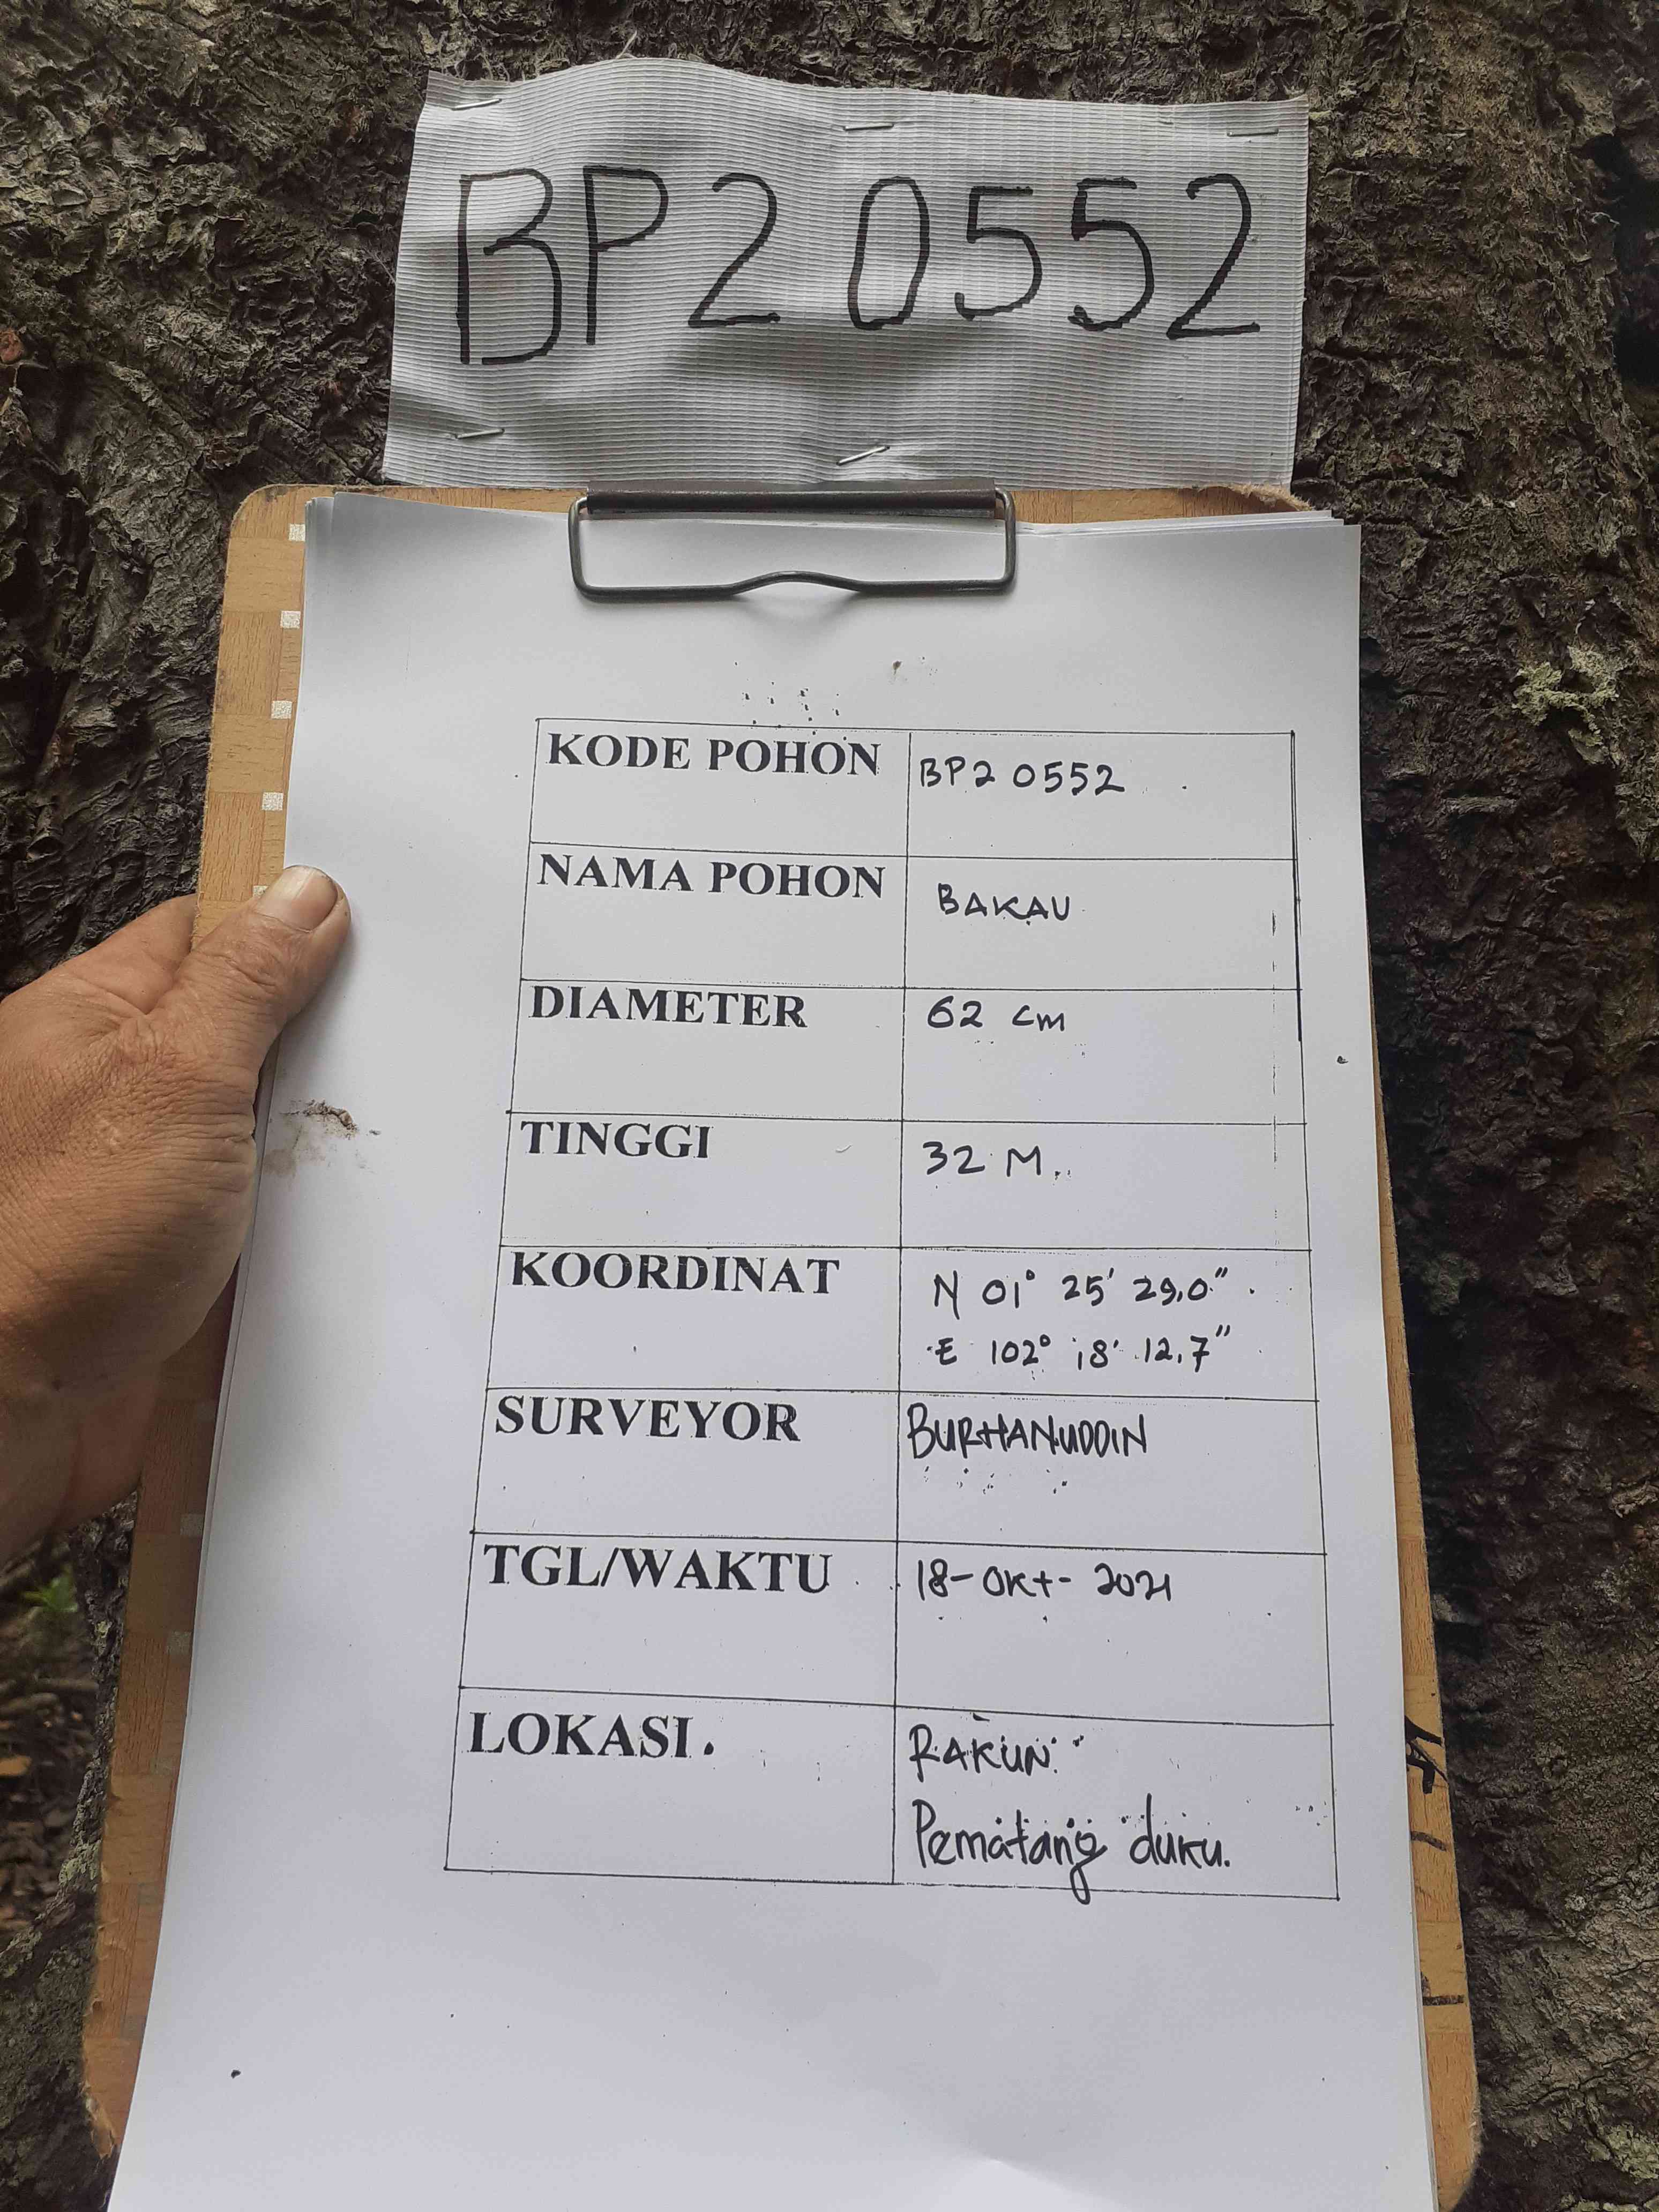 BP2 0552
KODE POHON BP2 0552
NAMA POHON BAKAU
DIAMETER 62 cm
TINGGI 32 M.
KOORDINAT N 01° 25' 29,0"
E 102° 18' 12,7"
SURVEYOR BURHANUDDIN
TGL/WAKTU 18-OKt-2021
LOKASI. RAKUN
Pematang duku.